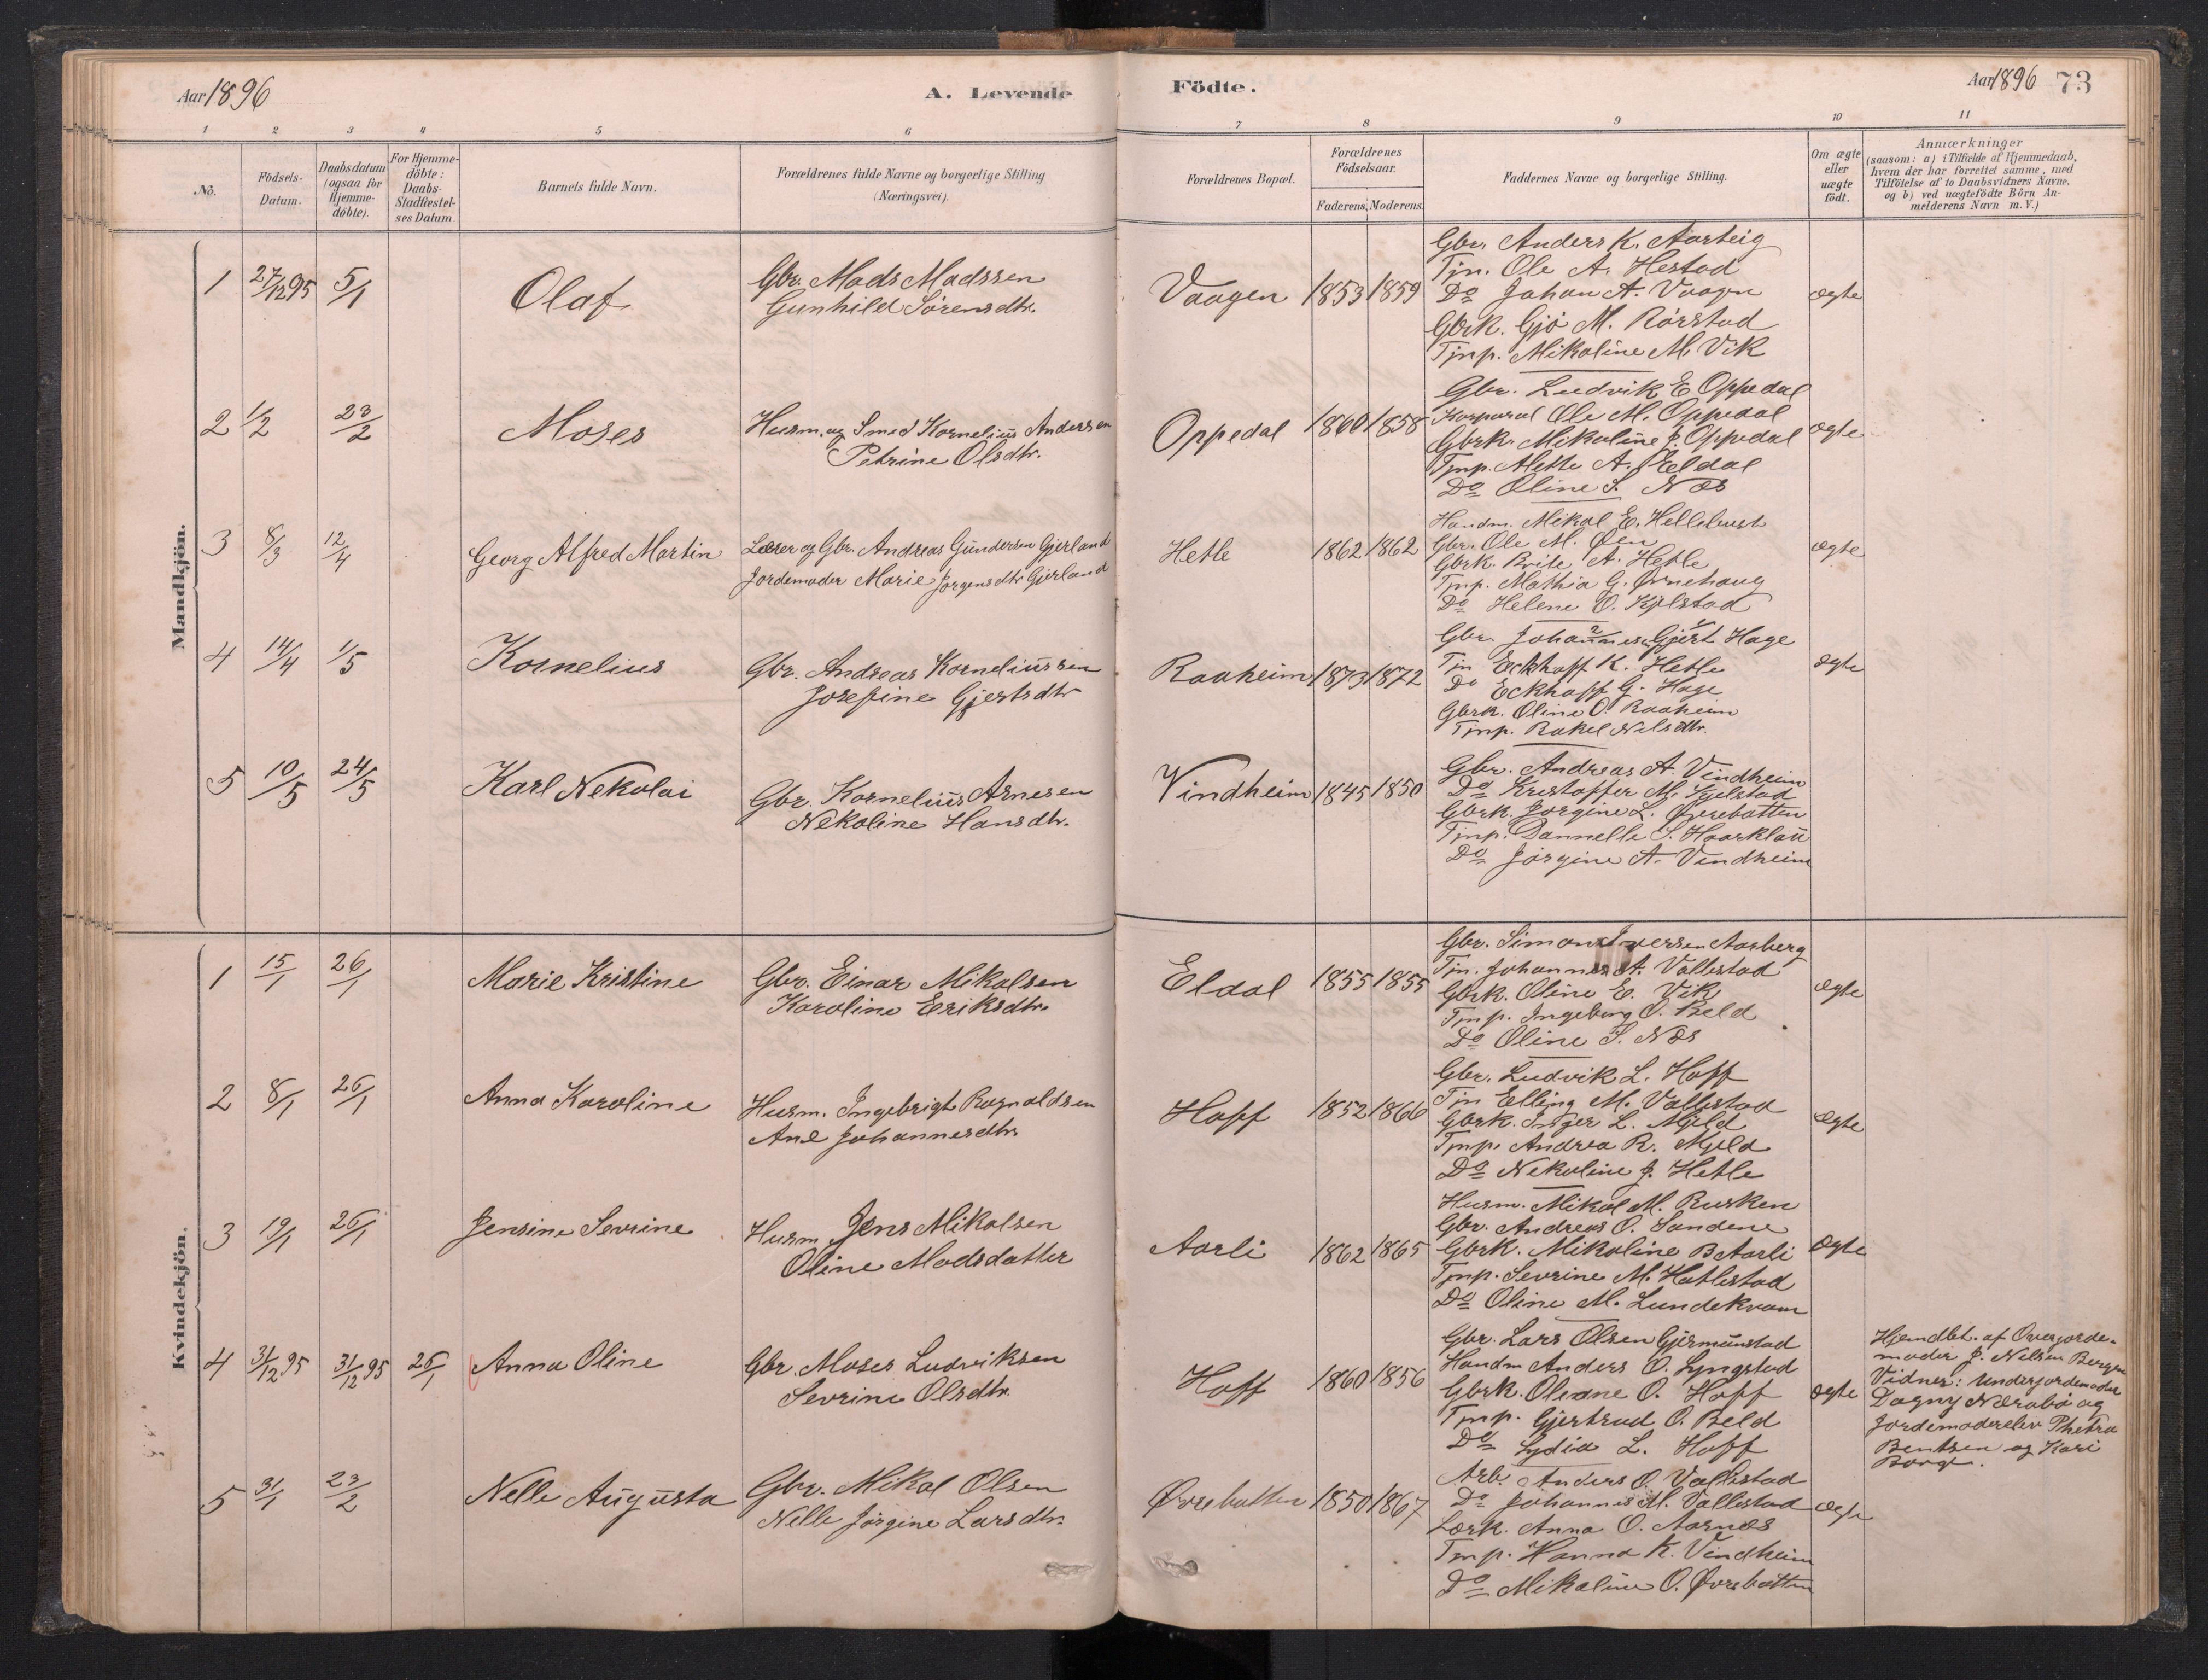 Aar 1896
A. Levende
Födte.
Aar 1896 73
1 2 3 4 5 6 7 8 9 10 11
No.
Födsels-Datum.
Daabsdatum (ogsaa for Hjemme-döbte).
For Hjemme-döbte: Daabs-Stadfæstel-ses Datum.
Barnets fulde Navn.
Forældrenes fulde Navne og borgerlige Stilling (Næringsvei).
Forældrenes Bopæl.
Forældrenes Födselsaar.
Faderens. Moderens.
Faddernes Navne og borgerlige Stilling.
Om ægte eller uægte födt.
Anmærkninger
(saasom: a) i Tilfælde af Hjemmedaab,
hvem der har forrettet samme, med
Tilföielse af to Daabsvidners Navne,
og b) ved uægtefödte Börn An-
melderens Navn m. V.)
Mandkjön.
1 27/12 95 5/1 Olaf
Gbr. Mads Madssen
Gunhild Sørensdtr.
Vaagen 1853 1859
Gbr. Anders K. Aarteig
Tjn. Ole A. Hestad
Do Johan A. Vaagen
Gbrk. Gjö M. Rörstad
Tjnp. Mikaline M. Vik
ægte
2 1/2 23/2 Moses
Husm. og Smed Kornelius Anderssen
Petrine Olsdtr.
Oppedal 1860 1858
Gbr. Ludvik E Oppedal
Korporal Ole M. Oppedal
Gbrk. Mikaline J. Oppedal
Tjnp. Mette A. Eeldal
Do Oline S. Næs
ægte
3 8/3 12/4 Georg Alfred Martin
Lærer og Gbr. Andreas Gundersen Gjerland
Jordemoder Marie Jørgensdtr Gjerland
Hetle 1862 1862
Handm. Mikal E. Hellebust
Gbr. Ole M. Øen
Gbrk. Brite A. Hetle
Tjnp. Mathia G. Ørnehaug
Do Helene O. Kjelstad
ægte
4 14/4 1/5 Kornelius
Gbr. Andreas Korneliussen
Josefine Gjertsdtr
Raaheim 1873 1872
Gbr. Johannes Gjert Hage
Tjn Eckhoff K. Hetle
Do Eckhoff G. Hage
Gbrk. Oline O. Raaheim
Tjnp. Rakel Nelsdtr.
ægte
5 10/5 24/5 Karl Nekolai
Gbr. Kornelius Arnesen
Nekoline Hansdtr.
Vindheim 1845 1850
Gbr. Andreas A. Vindheim
Do Kristoffer M. Kjelstad
Gbrk. Jørgine L. Øvrebotten
Tjnp. Dannelle S. Haarklau
Do Jørgine A. Vindheim
Kvindekjön.
1 15/1 26/1 Marie Kristine
Gbr. Einar Mikalsen
Karoline Eriksdtr.
Eldal 1855 1855
Gbr. Simon Iversen Aasberg
Tjn. Johannes A. Vallestad
Gbrk. Oline E. Vik
Tjnp. Ingeborg O. Beld
Do Oline S. Næs
ægte
2 8/1 26/1 Anna Karoline
Husm. Ingebrigt Ragnaldsen
Ane Johannesdtr.
Hoff 1852 1866
Gbr. Ludvik L. Hoff
Tjn Elling M. Vallestad
Gbrk. Inger L. Mjeld
Tjnp. Andrea R. Mjeld
Do Nekoline J. Hetle
ægte
3 19/1 26/1 Jensine Sevrine
Husm. Jens Mikalsen
Oline Madsdatter
Aarli 1862 1865
Husm. Mikal M. Rusken
Gbr. Andreas O. Sandene
Gbrk. Mikoline B Aarli
Tjnp. Sevrine M. Hatlestad
Do Oline M. Lundekvam
ægte
4 31/12 95 31/12 95 26/1 Anna Oline
Gbr. Moses Ludviksen
Sevrine Olsdtr.
Hoff 1860 1856
Gbr. Lars Olsen Gjermunstad
Handm Anders O. Lyngstad
Gbrk. Oleane O. Hoff
Tjnp. Gjertrud O. Beld
Do Lydia L. Hoff
ægte
Hjemdbt. af Overjorde-
moder J. Nelsen Bergen
Vidner: Underjordemoder
Dagny Nærobø og
Jordemoderelev Phetra
Bentsen og Kari
Borge.
5 31/1 23/2 Nelle Augusta
Gbr. Mikal Olsen
Nelle Jørgine Larsdtr.
Øvrebotten 1850 1867
Arb. Anders O. Vallestad
Do Johannes M. Vallestad
Lærk. Anna O. Aarnæs
Tjnp. Hanna K. Vindheim
Do Mikaline O. Øvrebotten
ægte